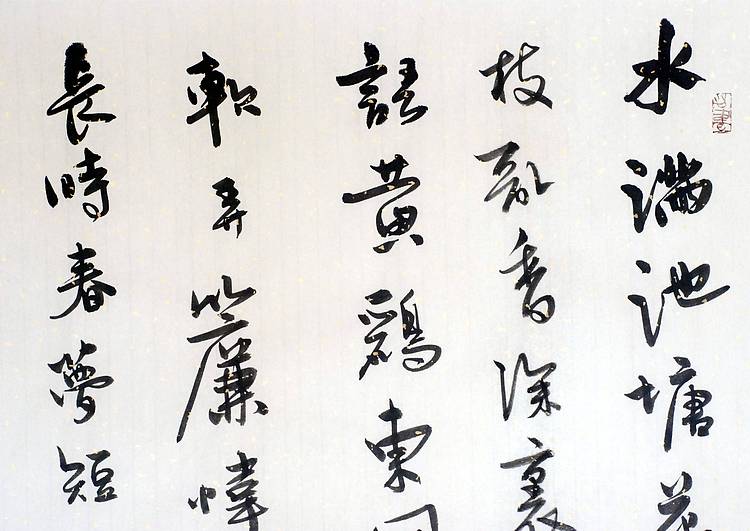 水滿池塘
枝亂香深裏
語黄鸝東
軟弄簾幃
長時春夢短